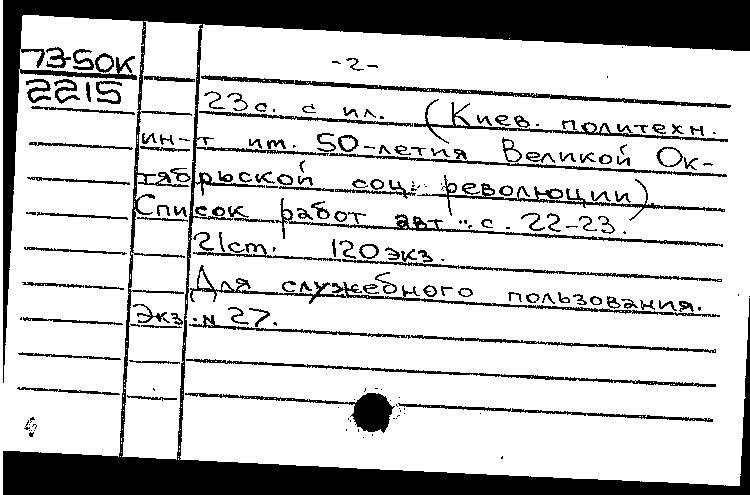 73-50К
2215
-2-
23с. с ил. (Киев. политехн.
ин-т им. 50-летия Великой Ок-
тябрьской соц. революции)
Список работ авт.: с. 22-23.
21см. 120экз.
Для служебного пользования.
Экз. N 27.